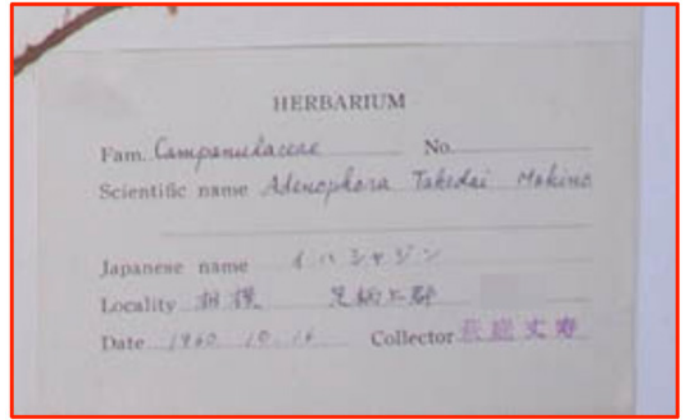 HERBARIUM
Fam. Campanulaceae No.
Scientific name Adenophora Takedai Makino
Japanese name イハシャジン
Locality 相模 足柄上郡
Date 1960. 10. 16 Collector 萩庭丈寿